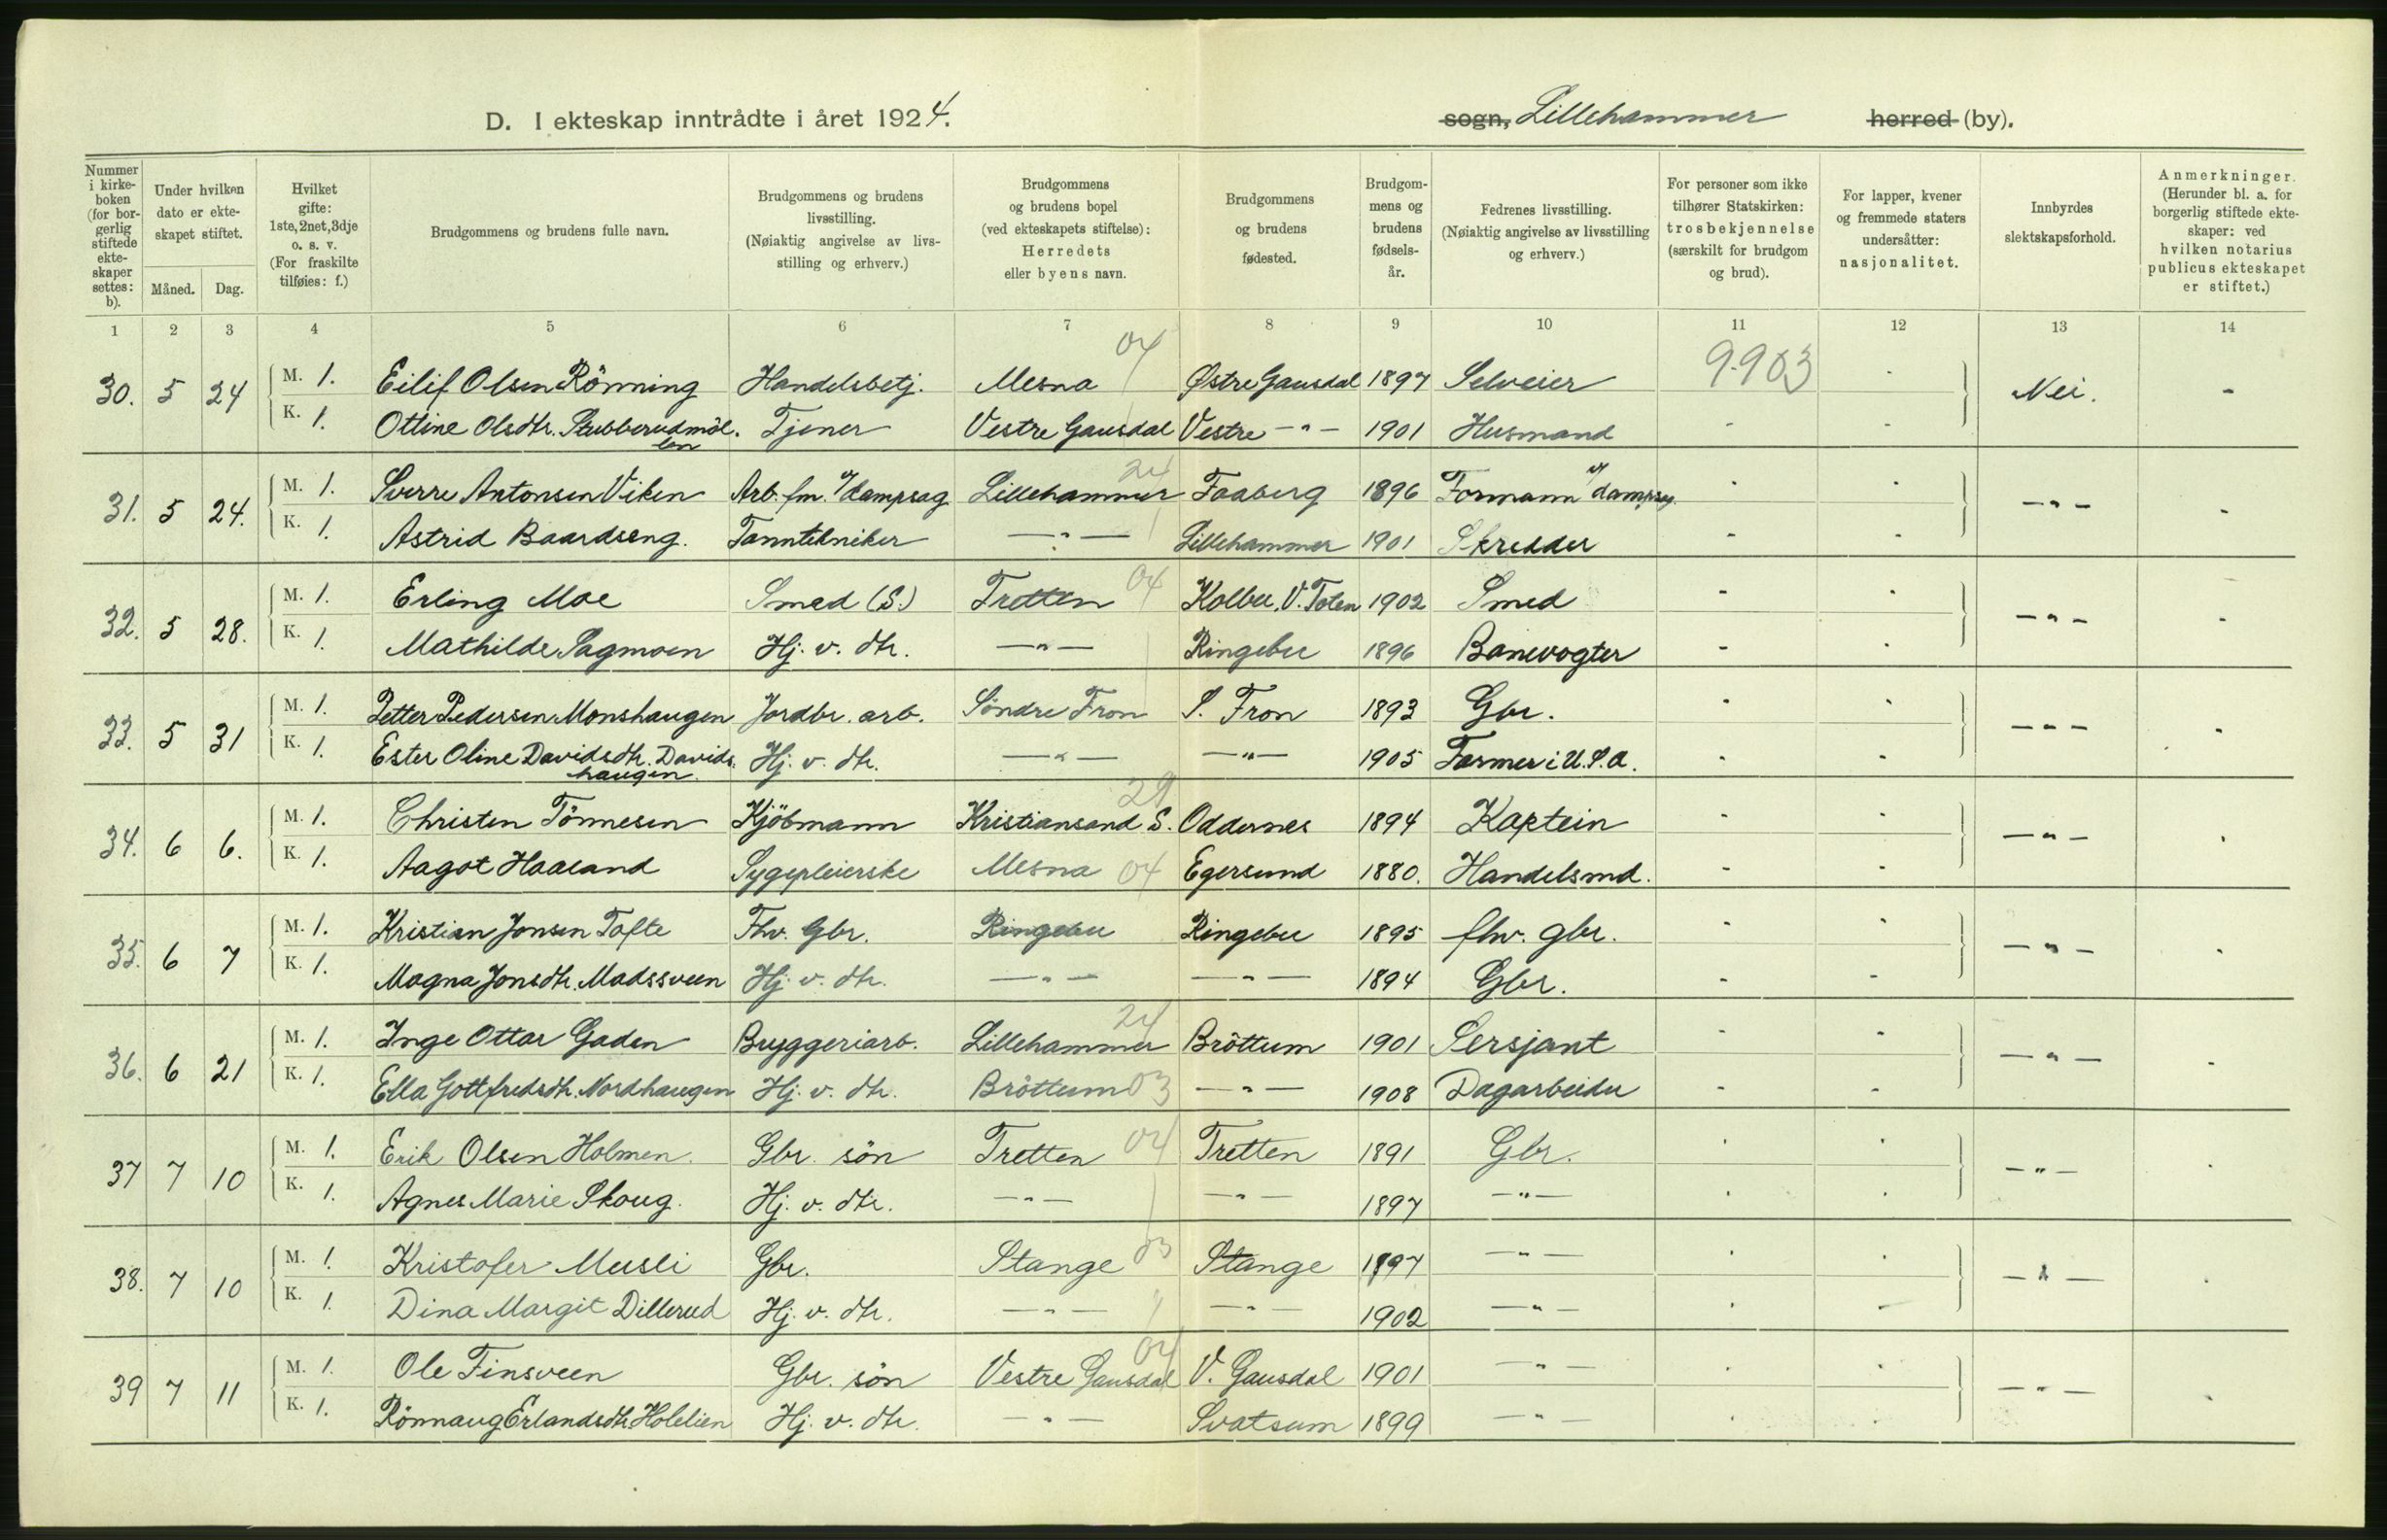 D. I ekteskap inntrådte i året 1924.
sogn, Lillehammer herred (by).
Nummer i kirke-boken (for bor-gerlig stiftede ekte-skaper settes: b).
Under hvilken dato er ekte-skapet stiftet.
Måned. Dag.
Hvilket gifte: 1ste, 2net, 3dje o. s. v. (For fraskilte tilføies: f.)
Brudgommens og brudens fulle navn.
Brudgommens og brudens livsstilling. (Nøiaktig angivelse av livs-stilling og erhverv.)
Brudgommens og brudens bopel (ved ekteskapets stiftelse): Herredets eller byens navn.
Brudgommens og brudens fødested.
Brudgom-mens og brudens fødsels-år.
Fedrenes livsstilling. (Nøiaktig angivelse av livsstilling og erhverv.)
For personer som ikke tilhører Statskirken: trosbekjennelse (særskilt for brudgom og brud).
For lapper, kvener og fremmede staters undersåtter: nasjonalitet.
Innbyrdes slektskapsforhold.
Anmerkninger. (Herunder bl. a. for borgerlig stiftede ekte-skaper: ved hvilken notarius publicus ekteskapet er stiftet.)
1 2 3 4 5 6 7 8 9 10 11 12 13 14
30. 5 24 M. 1. Eilif Olsen Rönning Handelsbetj. Mesna 04 Østre Gausdal 1897 Selveier 9903 - Nei. -
K. 1. Otline Olsdtr. Stubberudmölen Tjener Vestre Gausdal Vestre -"- 1901 Husmand - -
31. 5 24. M. 1. Sverre Antonsen Viken Arb. fm. v/ dampsag Lillehammer 24 Faaberg 1896 Formann v/ dampsag. - - -"- -
K. 1. Astrid Baardseng. Tanntekniker -"- Lillehammer 1901 Skredder - -
32. 5 28. M. 1. Erling Moe Smed (S.) Tretten 04 Kolbu, V. Toten 1902 Smed - - -"- -
K. 1. Mathilde Sagmoen Hj. v. dtr. -"- Ringebu 1896 Banevogter - -
33. 5 31 M. 1. Petter Pedersen Monshaugen Jordbr. arb. Söndre Fron S. Fron 1893 Gbr. - - -"- -
K. 1. Ester Oline Davidsdtr. Davidshaugen Hj. v. dtr. -"- -"- 1905 Farmer i U.S.A. - -
34. 6 6. M. 1. Christen Tönnesen Kjöbmann Kristiansand S. 29 Oddernes 1894 Kaptein - - -"- -
K. 1. Aagot Haaland Sygepleierske Mesna 04 Egersund 1880. Handelsmd. - -
35. 6 7 M. 1. Kristian Jonsen Tofte Fhv. Gbr. Ringebu Ringebu 1895 fhv. gbr. - - -"- -
K. 1. Magna Jonsdtr. Madssveen Hj. v. dtr. -"- -"- 1894 Gbr. - -
36. 6 21 M. 1. Inge Ottar Gaden Bryggeriarb. Lillehammer 24 Bröttum 1901 Sersjant - - -"- -
K. 1. Ella Gottfredsdtr. Nordhaugen Hj. v. dtr. Bröttum 03 -"- 1908 Dagarbeider - -
37 7 10 M. 1. Erik Olsen Holmen. Gbr. sön Tretten 04 Tretten 1891 Gbr. - - -"- -
K. 1. Agnes Marie Skoug. Hj. v. dtr. -"- -"- 1897 -"- - -
38. 7 10 M. 1. Kristofer Musli Gbr. Stange 03 Stange 1897 -"- - - -"- -
K. 1. Dina Margit Dillerud Hj. v. dtr. -"- -"- 1902 -"- - -
39 7 11 M. 1. Ole Finsveen Gbr. sön Vestre Gausdal 04 V. Gausdal 1901 -"- - - -"- -
K. 1. Rönnaug Erlandsdtr. Holelien Hj. v. dtr. -"- Svatsum 1899 -"- - -